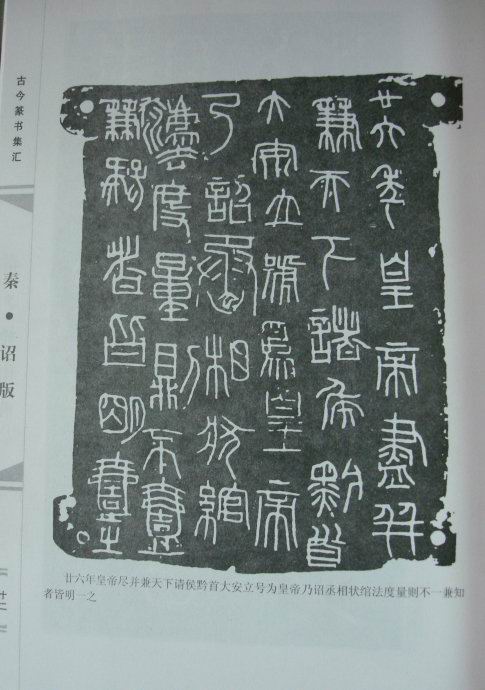 古今篆书集汇
秦·诏版
廿六年皇帝盡并
兼天下諸侯黔首
大安立號為皇帝
乃詔丞相狀綰
灋度量則不壹
歉疑者皆明壹之
廿六年皇帝尽并兼天下请侯黔首大安立号为皇帝乃诏丞相状绾法度量则不一兼知
者皆明一之